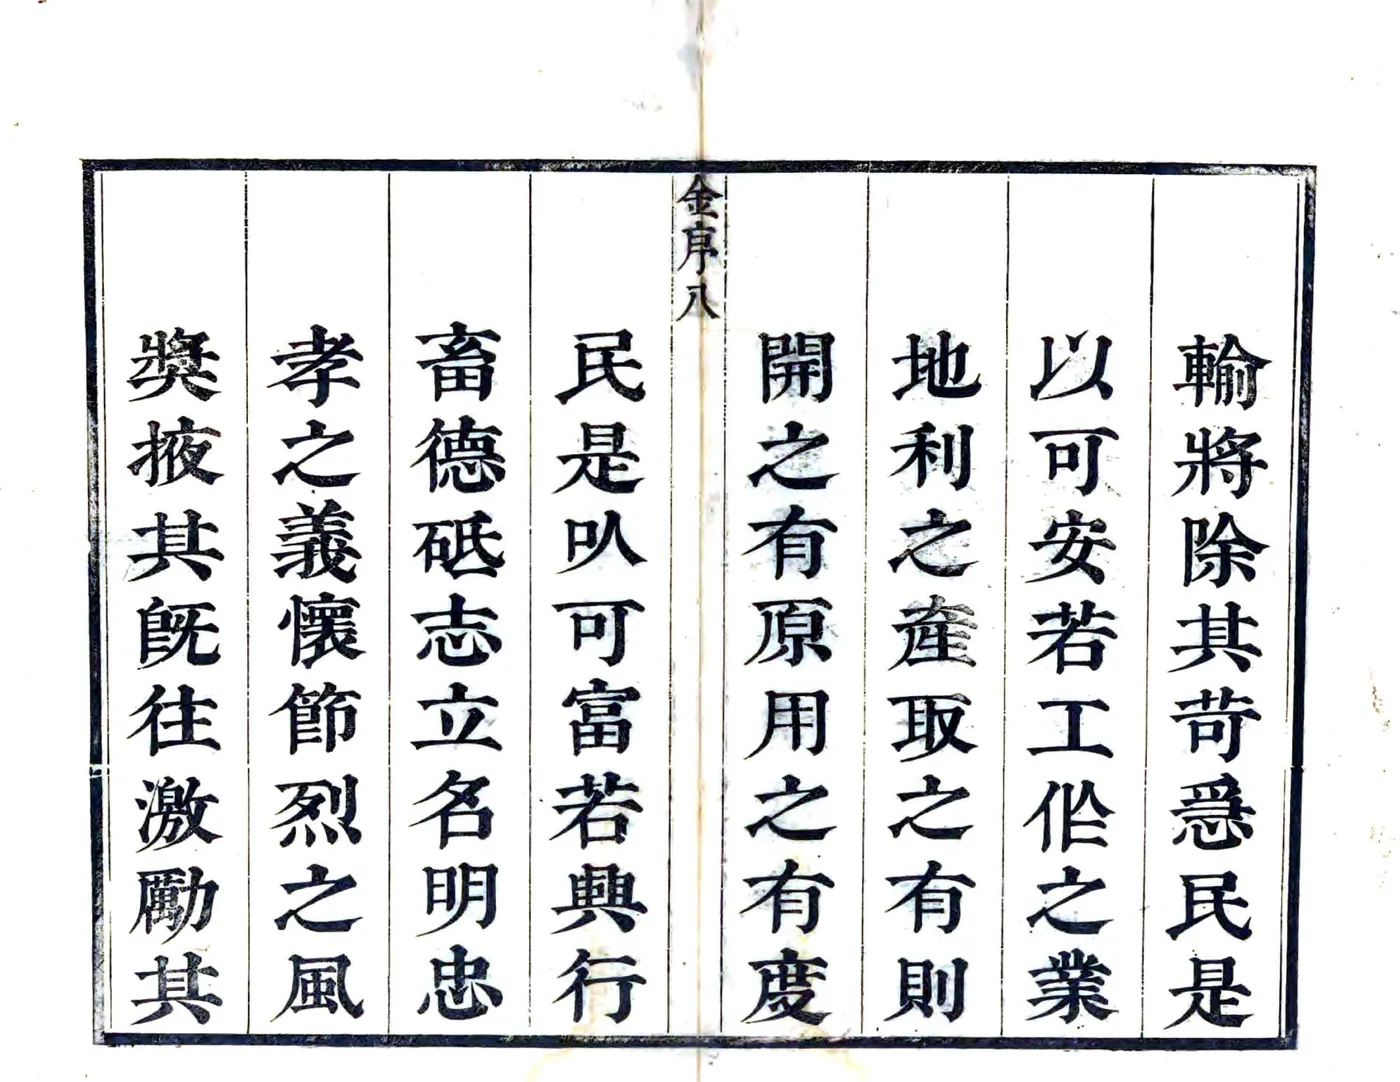 輸將除其苛𢙣民是
以可安若工作之業
地利之産取之有則
開之有原用之有度
金序八
民是㕥可富若興行
畜德砥志立名明忠
孝之義懷節烈之風
奬掖其旣往激勵其